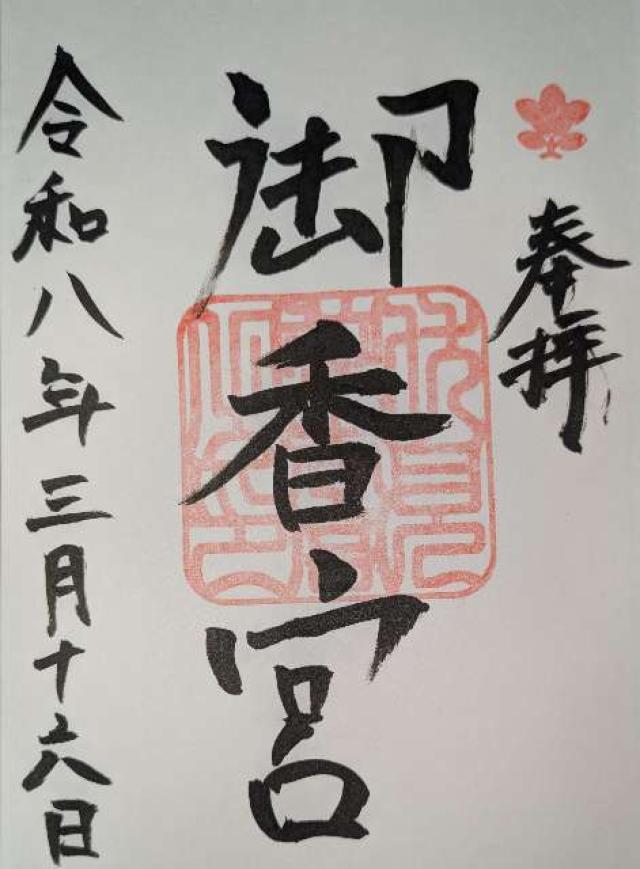 奉拝
御香宮
令和八年三月十六日